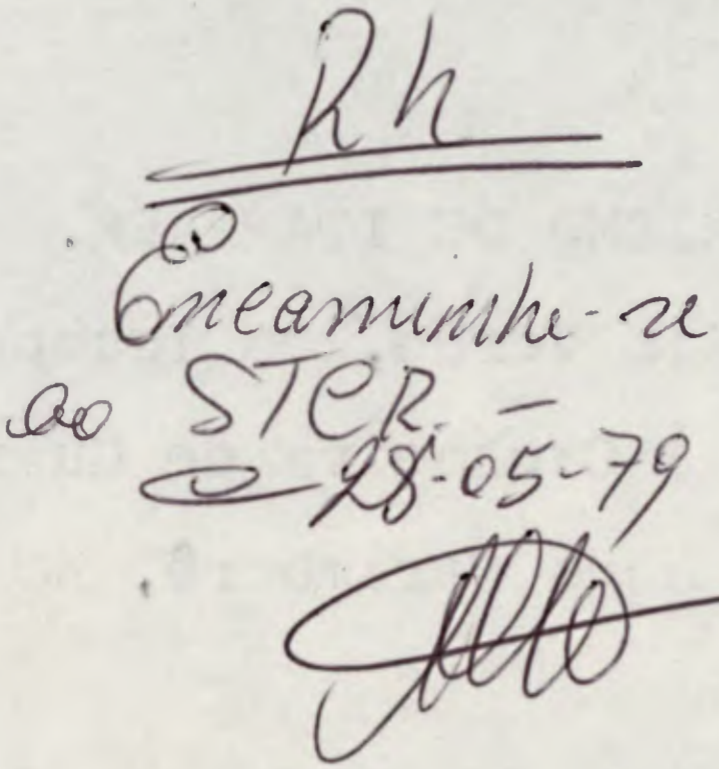 Rh
Encaminhe-se
ao STCR. -
28-05-79